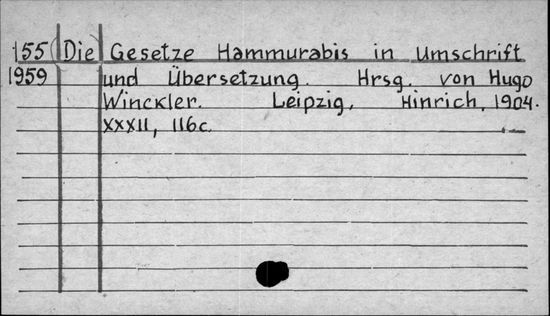 155 Die Gesetze Hammurabis in Umschrift
1959 und Übersetzung. Hrsg. von Hugo
Winckler. Leipzig, Hinrich, 1904.
XXXII, 116c.